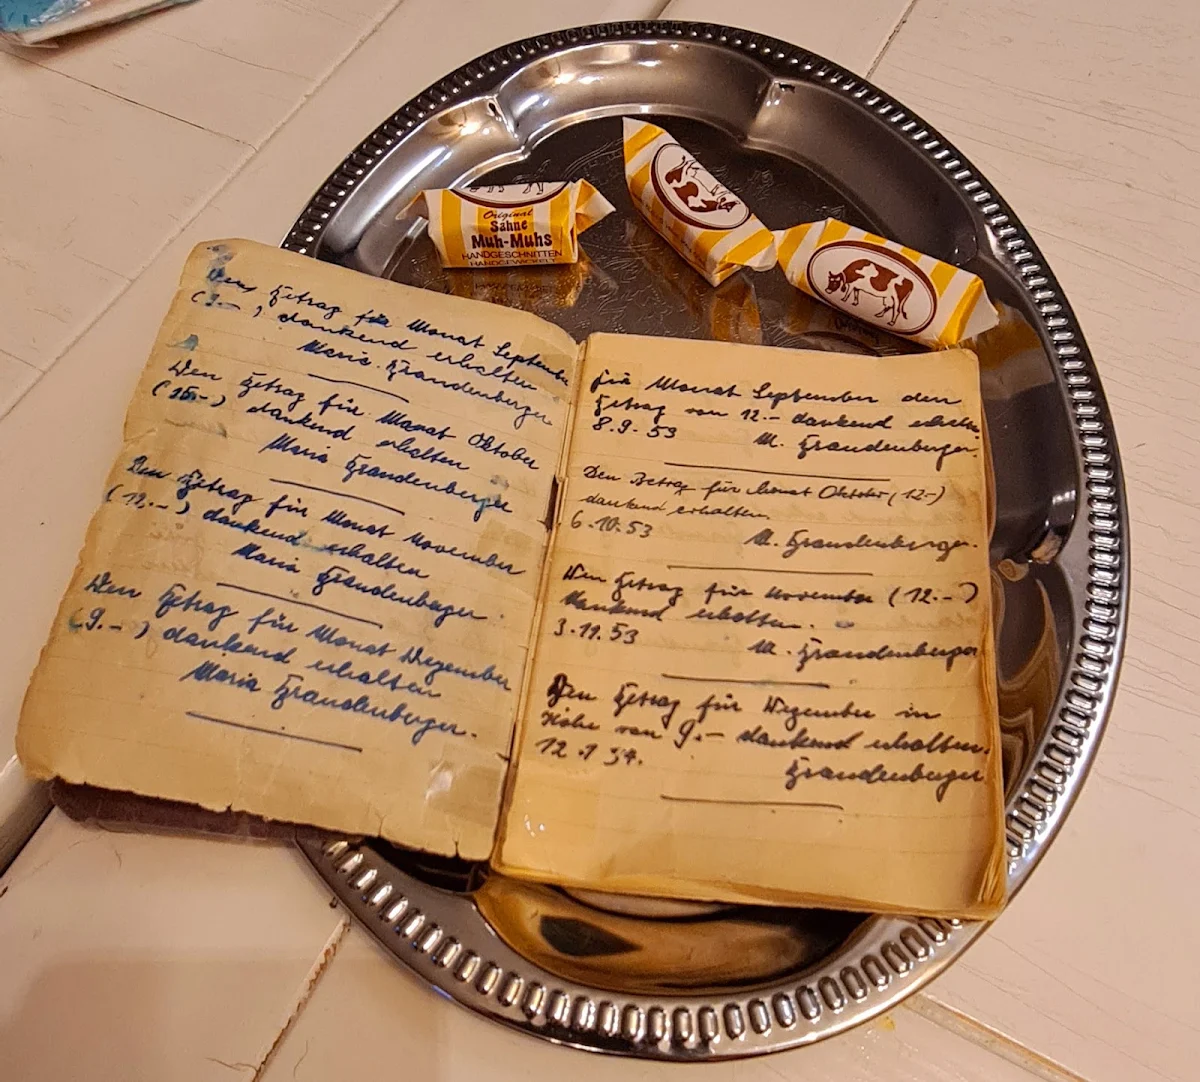 Original
Sahne
Muh-Muhs
HANDGESCHNITTEN
HANDGEWICKELT
Den Betrag für Monat September
(9.-) dankend erhalten
Maria Brandenberger
Den Betrag für Monat Oktober
(15.-) dankend erhalten
Maria Brandenberger
Den Betrag für Monat November
(12.-) dankend erhalten
Maria Brandenberger.
Den Betrag für Monat Dezember
(9.-) dankend erhalten
Maria Brandenberger.
für Monat September den
Betrag von 12.- dankend erhalten
8.9.53 M. Brandenberger.
Den Betrag für Monat Oktober (12.-)
dankend erhalten.
6.10.53 M. Brandenberger.
Den Betrag für November (12.-)
dankend erhalten.
3.11.53 M. Brandenberger
Den Betrag für Dezember in
Höhe von 9.- dankend erhalten.
12.1 54. Brandenberger